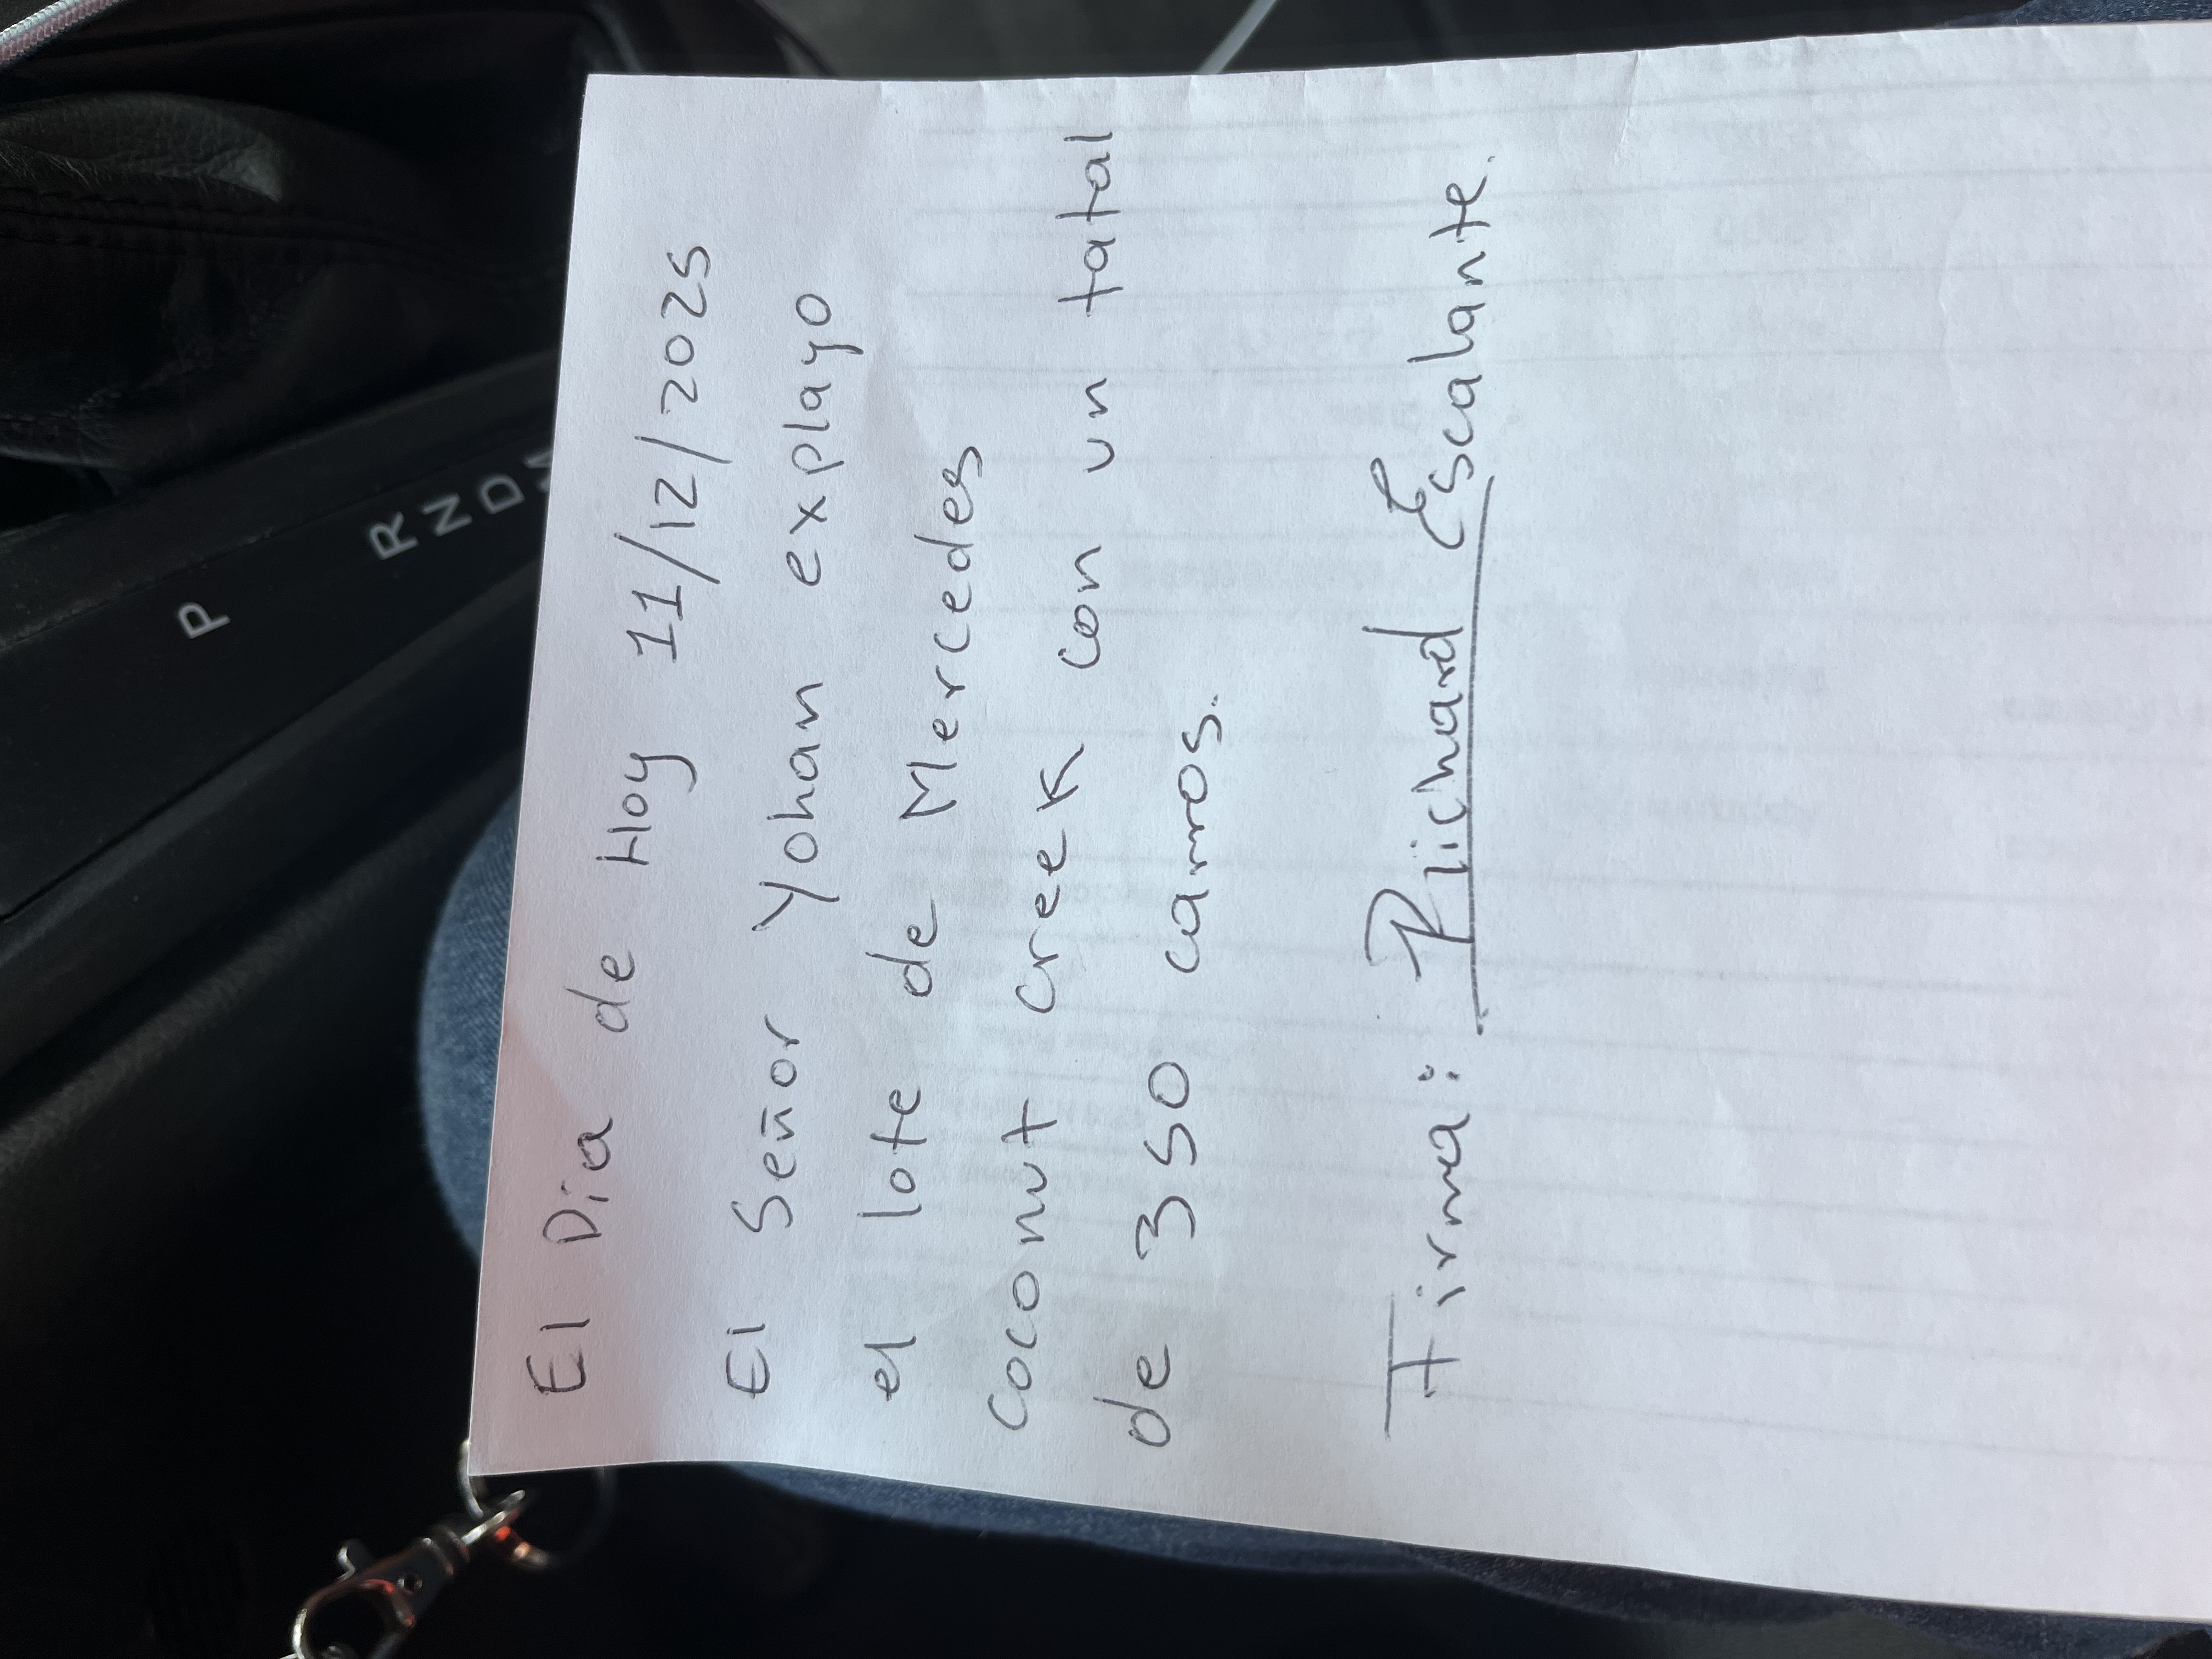 El Día de Hoy 11/12/2025
El Señor Yohan explayo
el lote de Mercedes
coconut creek con un tatal
de 350 carros.
Firma: Richard Escalante.
P
R
N
D